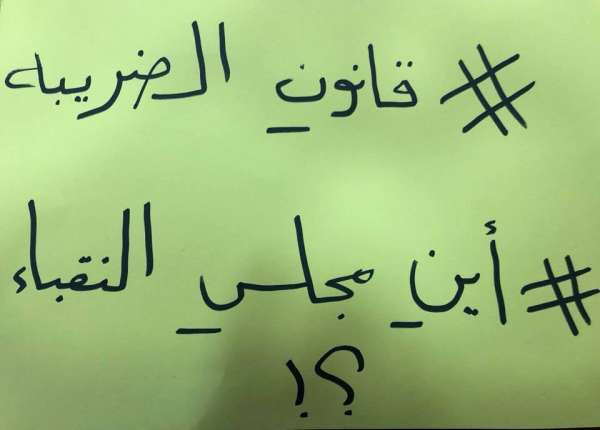 # قانون_الضريبه
# أين_مجلس_النقباء
؟!